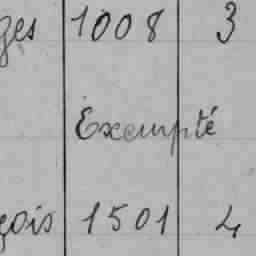 ges 1008 3
Exempté
çois 1501 4